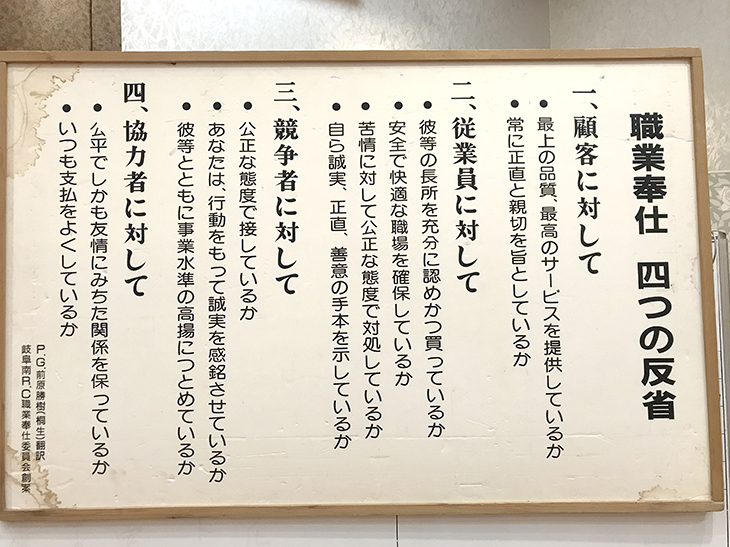 職業奉仕 四つの反省
一、顧客に対して
● 最上の品質、最高のサービスを提供しているか
● 常に正直と親切を旨としているか
二、従業員に対して
● 彼等の長所を充分に認めかつ買っているか
● 安全で快適な職場を確保しているか
● 苦情に対して公正な態度で対処しているか
● 自ら誠実、正直、善意の手本を示しているか
三、競争者に対して
● 公正な態度で接しているか
● あなたは、行動をもって誠実を感銘させているか
● 彼等とともに事業水準の高揚につとめているか
四、協力者に対して
● 公平でしかも友情にみちた関係を保っているか
● いつも支払をよくしているか
P.G.前原勝樹(桐生)翻訳
岐阜南R.C職業奉仕委員会創案